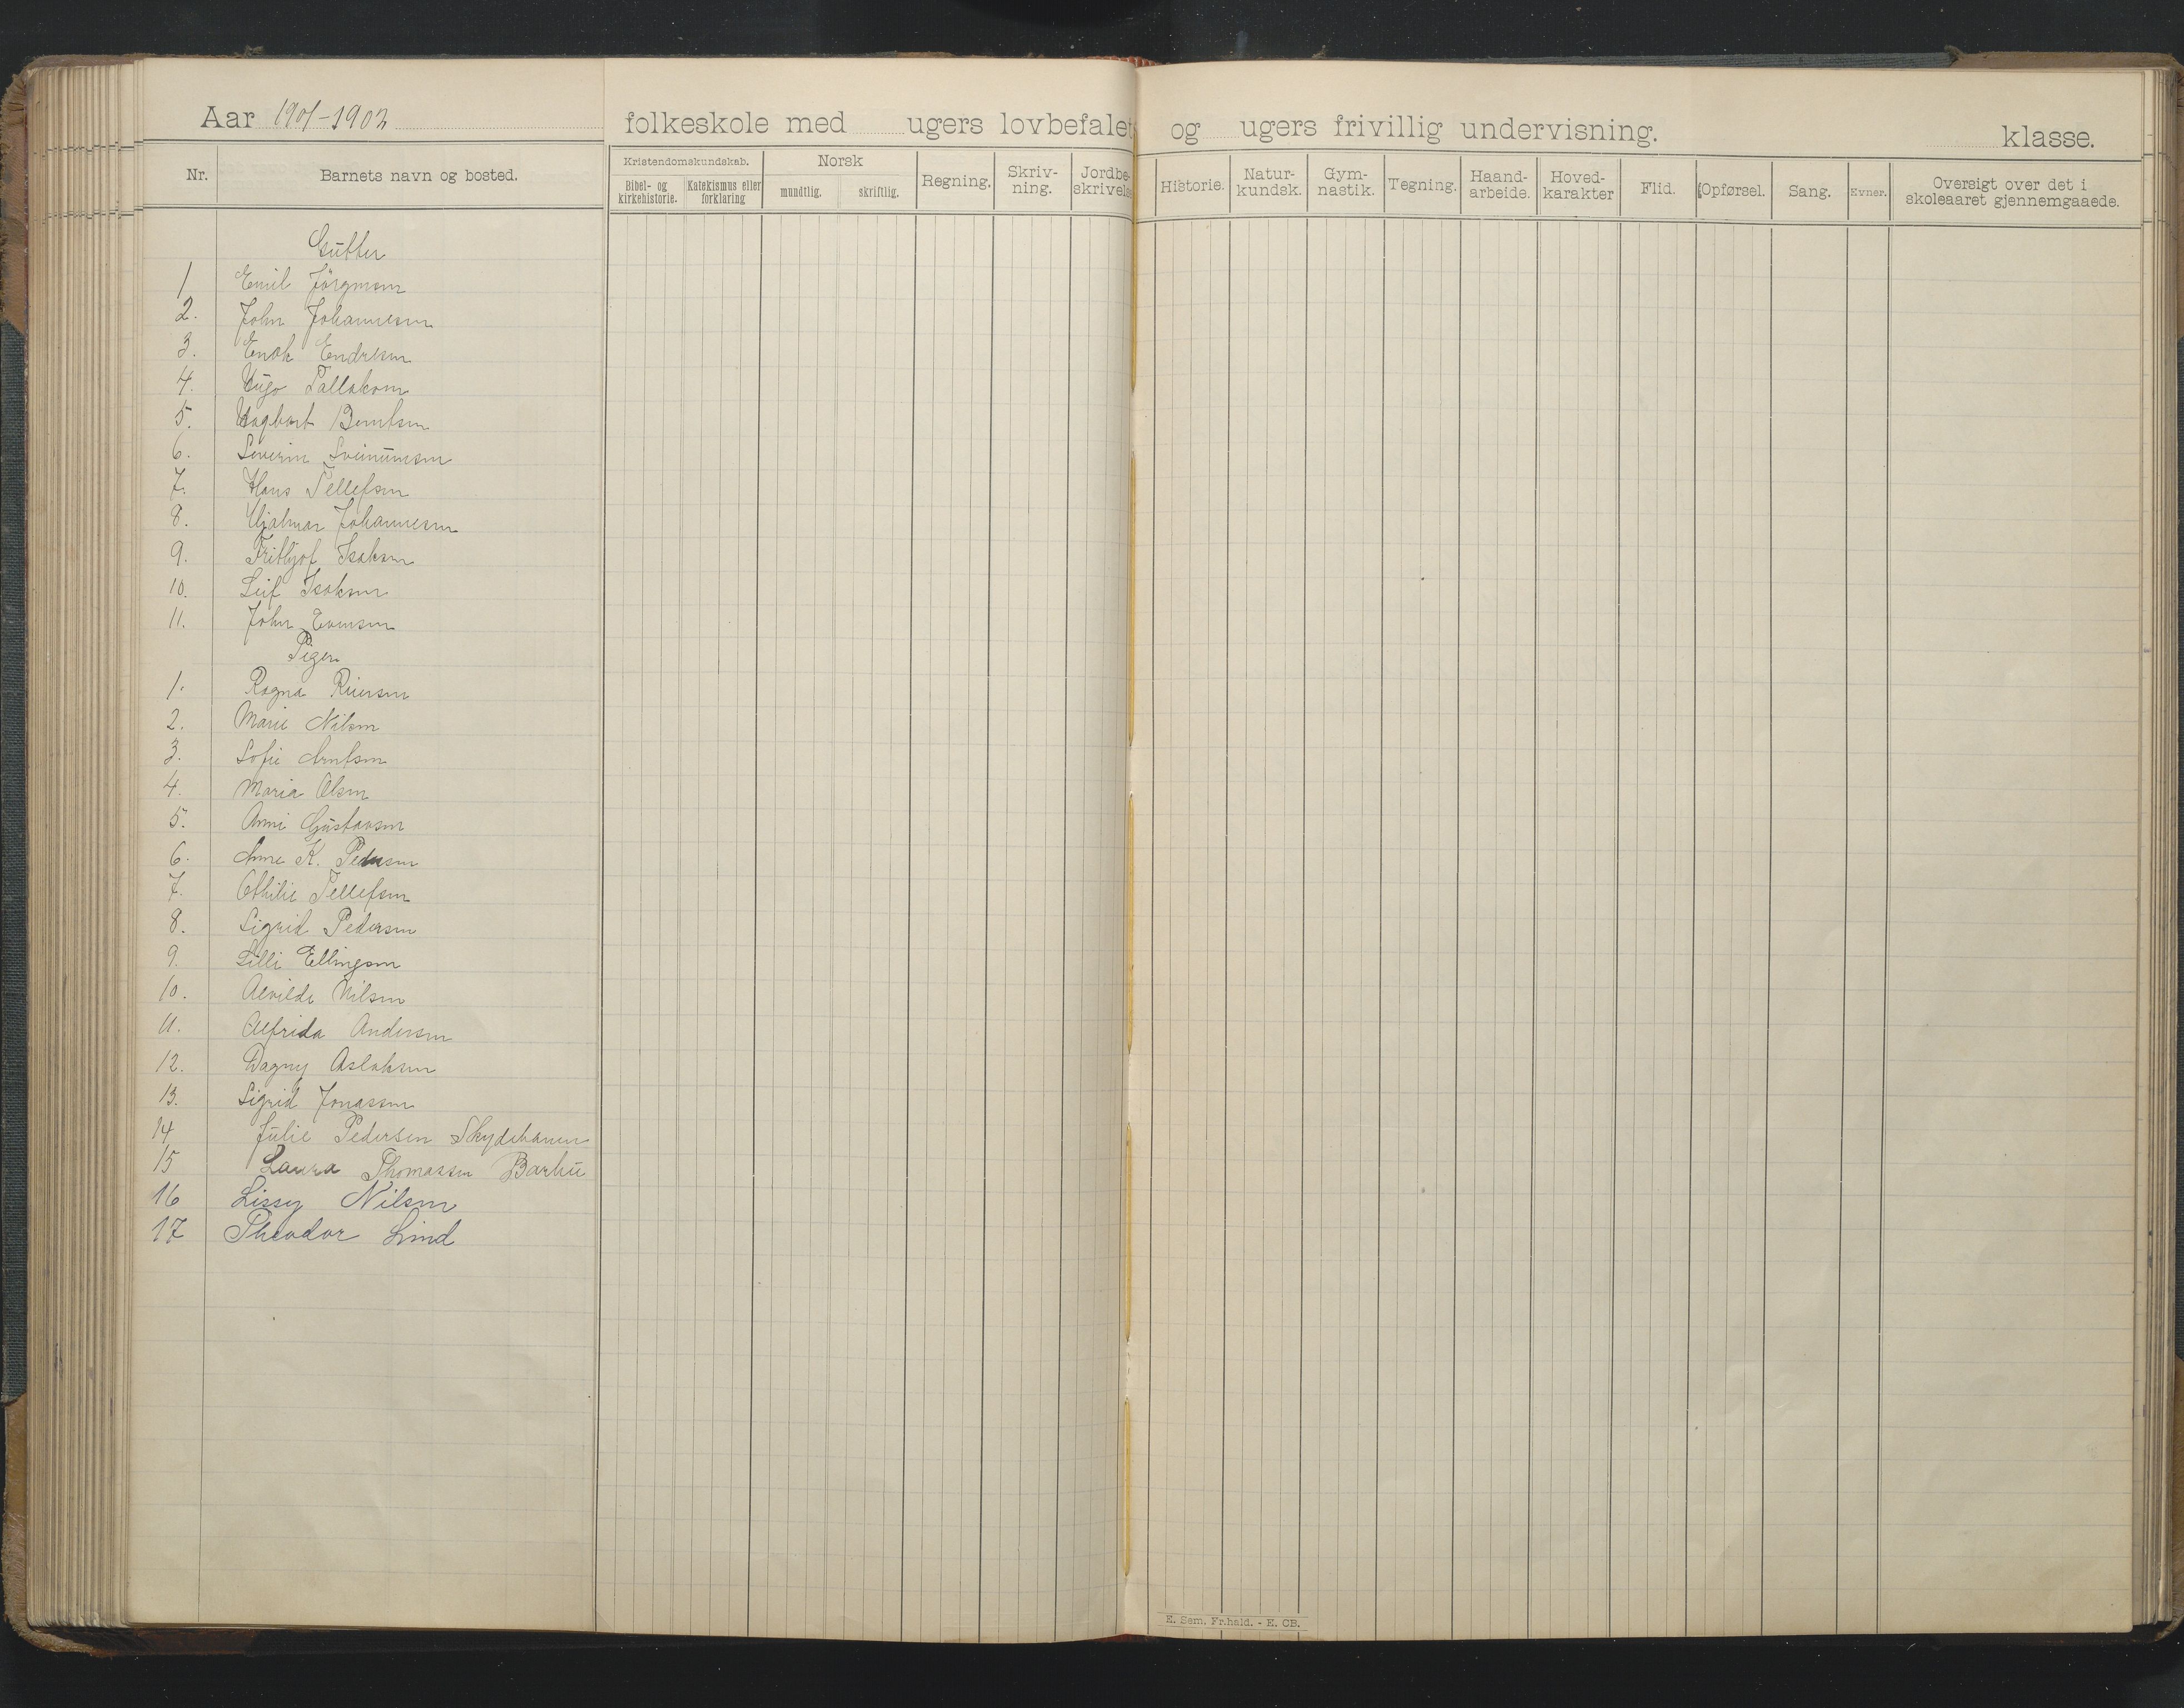 Aar 1901-1902 folkeskole med ugers lovbefalet og ugers frivillig undervisning. klasse.
Nr. Barnets navn og bosted. Kristendomskundskab. Bibel- og kirkehistorie. Katekismus eller forklaring Norsk mundtlig. skriftlig. Regning. Skriv-ning. Jordbe-skrivelse Historie. Natur-kundsk. Gym-nastik. Tegning. Haand-arbeide. Hoved-karakter Flid. Opførsel. Sang. Evner. Oversigt over det i skoleaaret gjennemgaaede.
Gutter
1 Emil Jörgensen
2. John Johannesen
3. Enok Endresen
4. Hugo Tallaksen
5. Hagbart Berntsen
6. Severin Sveinumsen
7. Hans Tellefsen
8. Hjalmar Johannesen
9. Frithjof Isaksen
10. Leif Isaksen
11. John Evensen
Piger
1. Ragna Reiersen
2. Marie Nilsen
3. Sofie Arntsen
4. Maria Olsen
5. Anni Gustavsen
6. Anne K. Pedersen
7. Othilie Tellefsen
8. Sigrid Pedersen
9. Lilli Ellingsen
10. Alvilde Nilsen
11. Alfrida Andersen
12. Dagny Aslaksen
13. Sigrid Jonassen
14 Julie Pedersen Skydebanen
15 Laura Thomassen Barbu
16 Lissy Nilsen
17 Theodor Lind
E. Sem. Fr.hald. - E. CB.